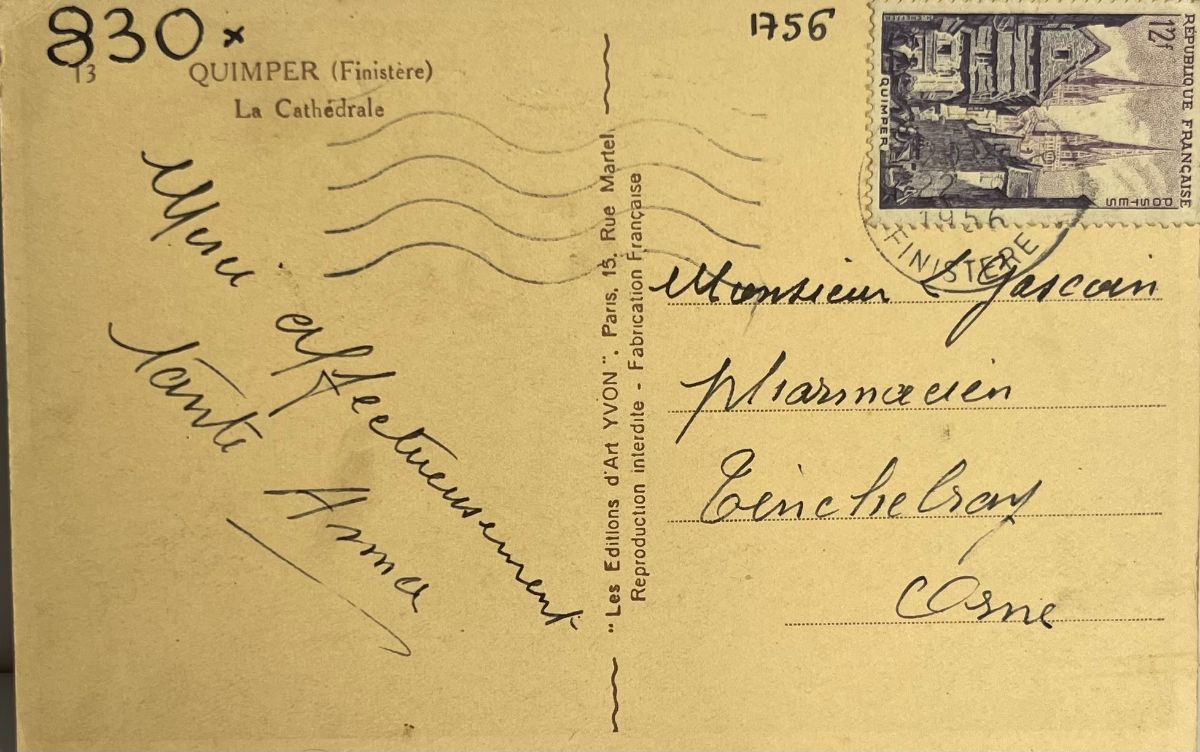 830 x
13
QUIMPER (Finistère)
La Cathédrale
affectueusement
Tante
Anna
" Les Editions d'Art YVON ", Paris, 15, Rue Martel
Reproduction interdite - Fabrication Française
1756
RÉPUBLIQUE FRANÇAISE
12f
POSTES
QUIMPER
22
1956
FINISTERE
Monsieur Gascoin
pharmacien
Tinchebray
Orne